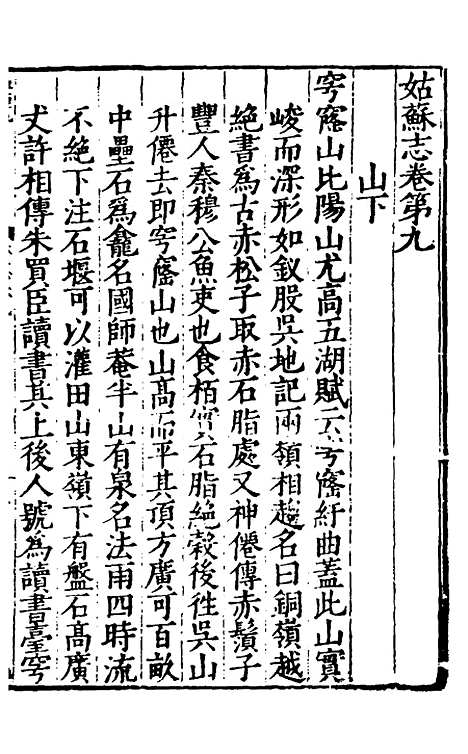 姑蘇志卷第九
山下
穹窿山比陽山尤高五湖賦云穹窿紆曲蓋此山實
峻而深形如釵股吳地記兩嶺相趨名曰銅嶺越
絶書爲古赤松子取赤石脂處又神僊傳赤鬚子
豐人秦穆公魚吏也食栢實石脂絶穀後徃吳山
升僊去即穹窿山也山髙而平其頂方廣可百畝
中壘石爲龕名國師菴半山有泉名法雨四時流
不絶下注石堰可以灌田山東嶺下有盤石髙廣
丈許相傳朱買臣讀書其上後人號為讀書臺穹